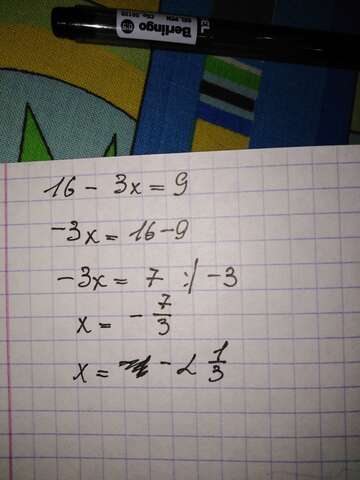 Berlingo
16 - 3x = 9
-3x = 16-9
-3x = 7 :/ -3
x = - 7/3
x = - 2 1/3